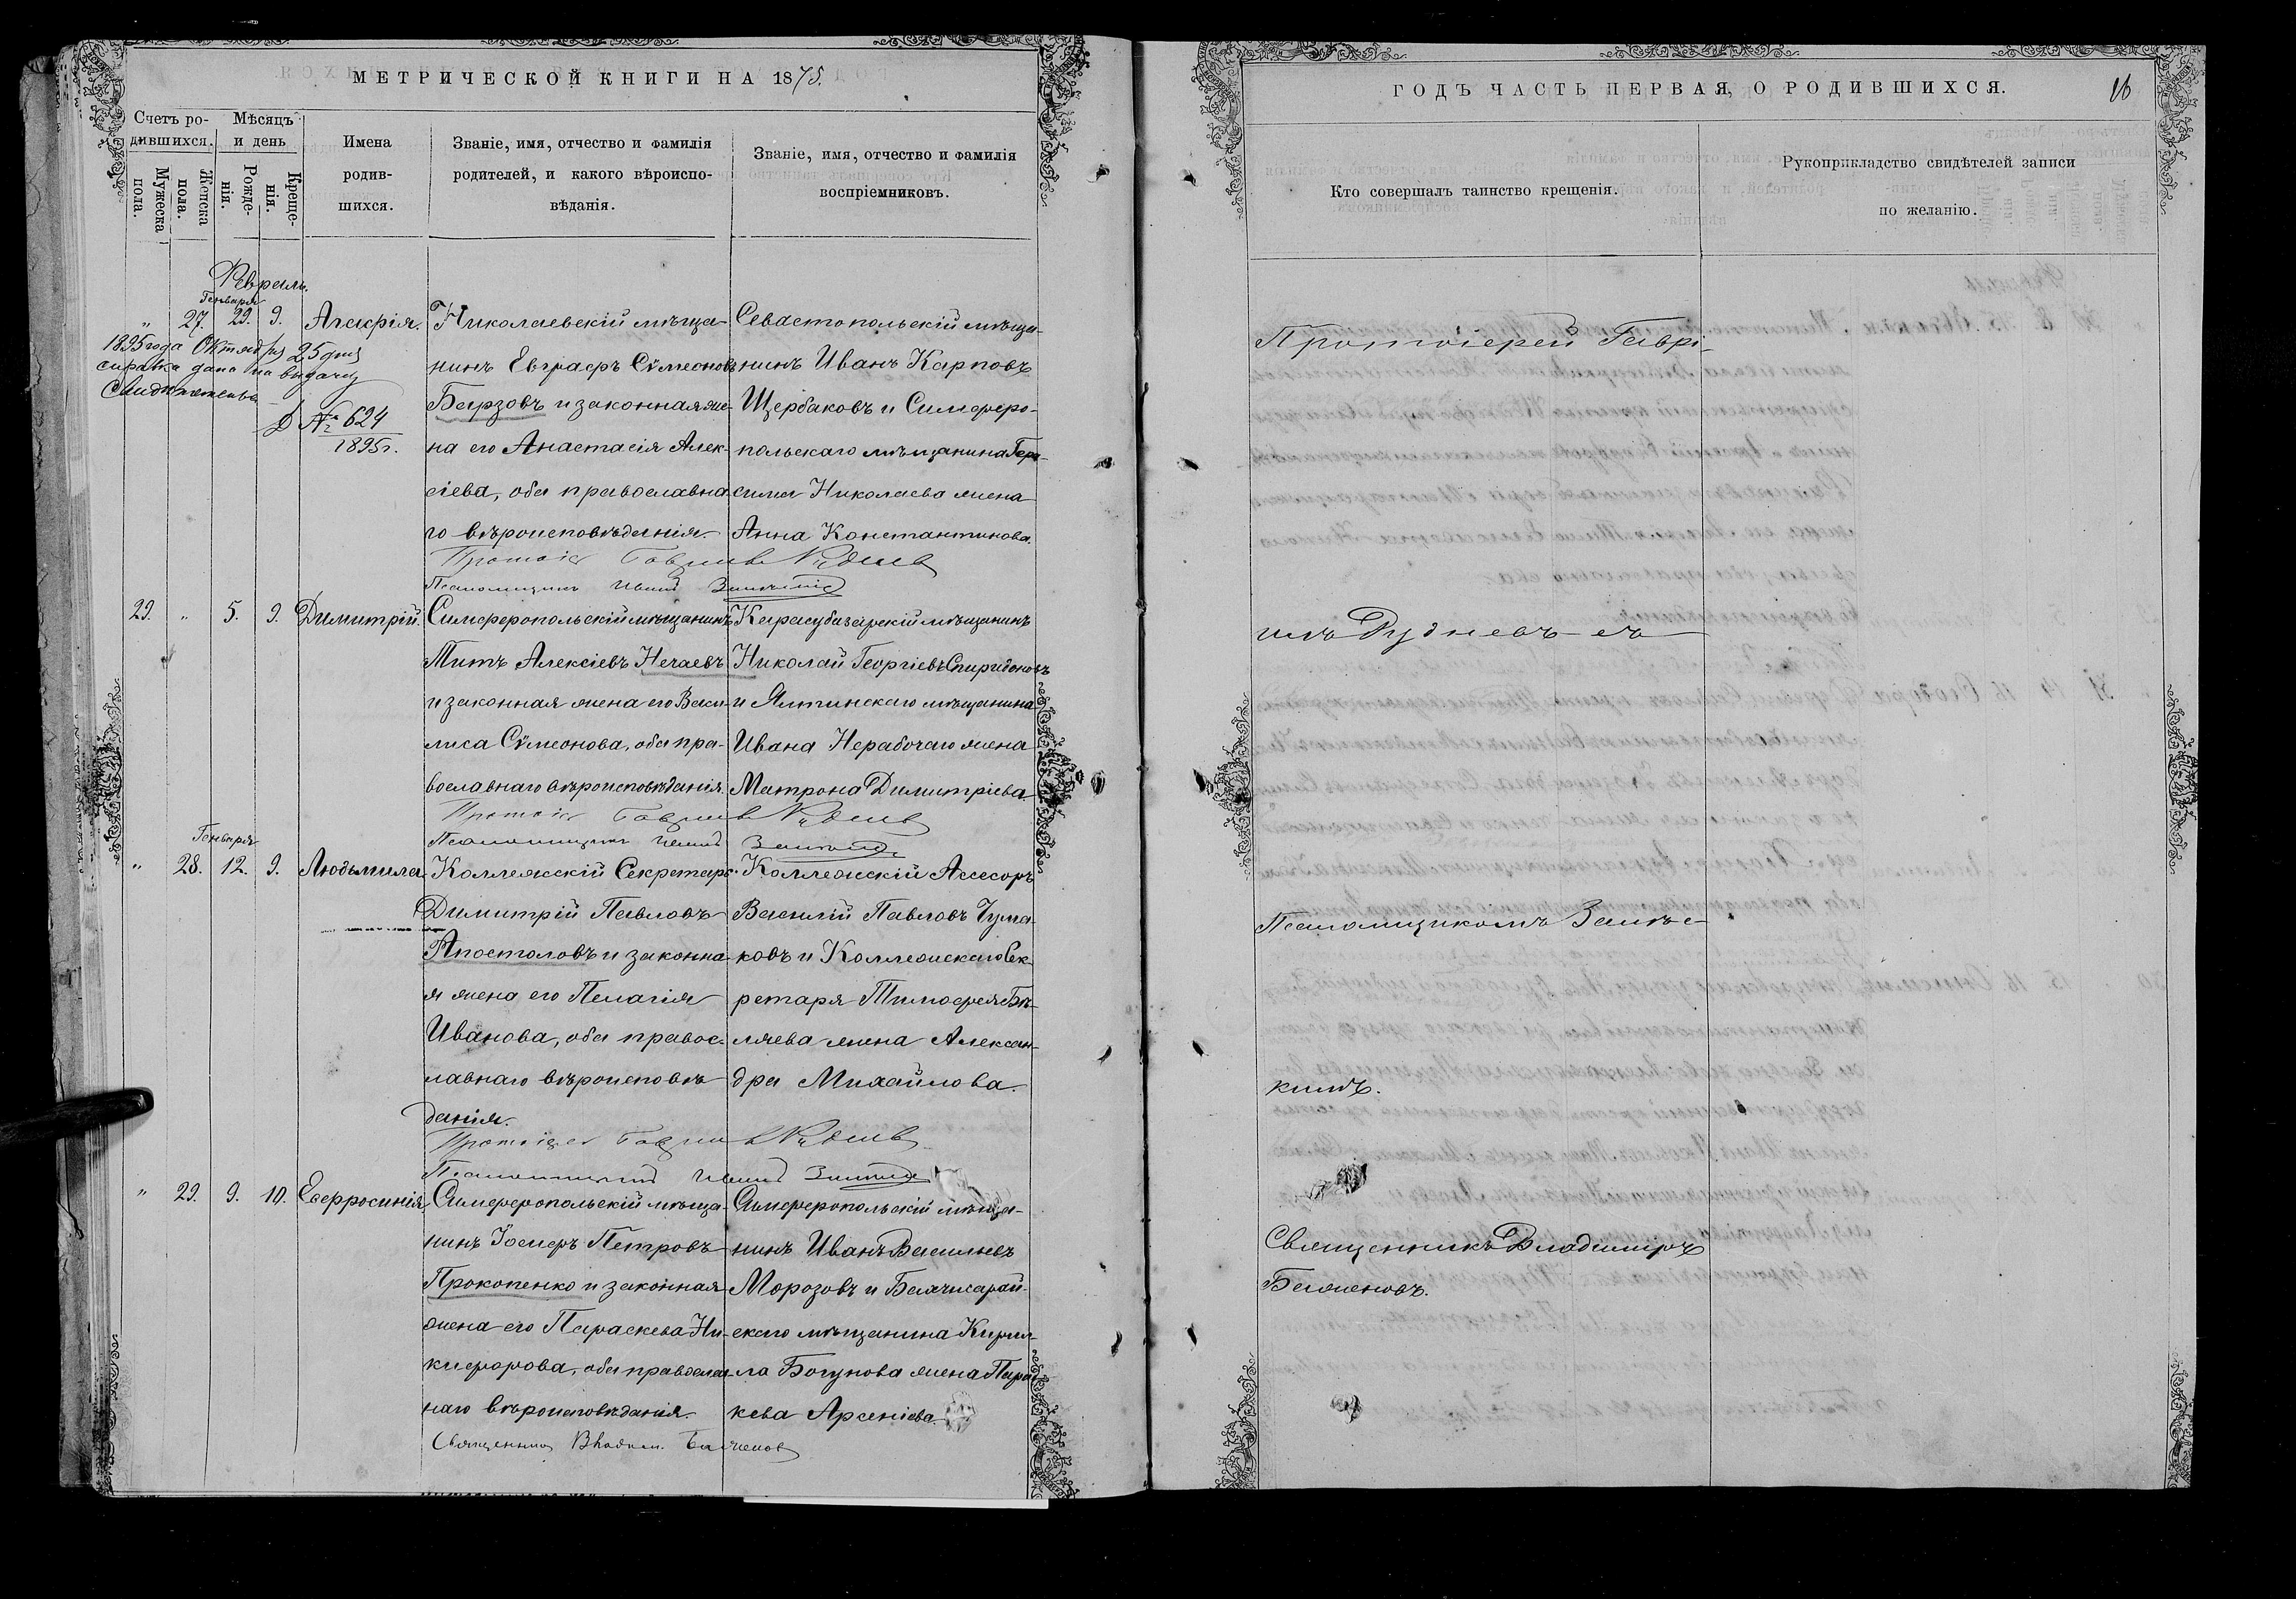 МЕТРИЧЕСКОЙ КНИГИ НА 1875.
Счетъ ро-
дившихся.
Мѣсяцъ
и день
Мужеска
пола.
Женска
пола.
Рожде-
нія.
Креще-
нія.
Имена
родив-
шихся.
Званіе, имя, отчество и фамилія
родителей, и какого вѣроиспо-
вѣданія.
Званіе, имя, отчество и фамилія
воспріемниковъ.
Февраль.
Генваря
" 27. 29. 9. Алексѣя.
1895 года Октября 25 дня
справка дана на выдачу
Свидѣтельства
№ 624
1895 г.
Николаевскій мѣща-
нинъ Евграфъ Сѵмеоновъ
Барзовъ и законная же-
на его Анастасія Алек-
сіева, оба православна
го вѣроисповѣданія.
Севастопольскій мѣща-
нинъ Иванъ Карповъ
Щербаковъ и Симферо-
польскаго мѣщанина Гера-
сима Николаева жена
Анна Константинова.
Протоіе Гавріилъ Рудневъ
Псаломщикъ Иванъ
29. " 5. 9. Димитрій.
Симферопольскій мѣщанинъ
Титъ Алексіевъ Нечаевъ
и законная жена его Васи-
лиса Сѵмеонова, оба пра-
вославнаго вѣроисповѣданія.
Карасубазарскій мѣщанинъ
Николай Георгіевъ Спиридоновъ
и Ялтинскаго мѣщанина
Ивана Нерабочаго жена
Матрона Димитріева
Протоіе Гавріилъ Рудневъ
Псаломщикъ Иванъ
Генваря
" 28. 12. 9. Людьмила
Коллежскій Секретарь
Димитрій Павловъ
Апостоловъ и законна-
я жена его Пелагія
Иванова, оба правос-
лавнаго вѣроисповѣ-
данія.
Коллежскій Асесоръ
Василій Павловъ Чума-
ковъ и Коллежскаго Сек-
ретаря Тимофея Бѣ-
ляева жена Алексан-
дра Михайлова.
Протоіер Гавріилъ Рудневъ
Псаломщикъ Иванъ
" 29. 9. 10. Евфросинія
Симферопольскій мѣща-
нинъ Іосифъ Петровъ
Прокопенко и законная
жена его Параскева Ни-
кифорова, оба православ-
наго вѣроисповѣданія.
Симферопольскій мѣща-
нинъ Иванъ Васильевъ
Морозовъ и Бахчисарай-
скаго мѣщанина Кирил-
ла Богунова жена Парас-
кева Арсеніева.
Священникъ Владим. Баженовъ
ГОДЪ ЧАСТЬ ПЕРВАЯ, О РОДИВШИХСЯ.
16
Кто совершалъ таинство крещенія.
Рукоприкладство свидѣтелей записи
по желанію.
Протоіерей Гаврі-
илъ Рудневъ съ
Псаломщикомъ
кимъ.
Священникъ Владиміръ
Баженовъ.